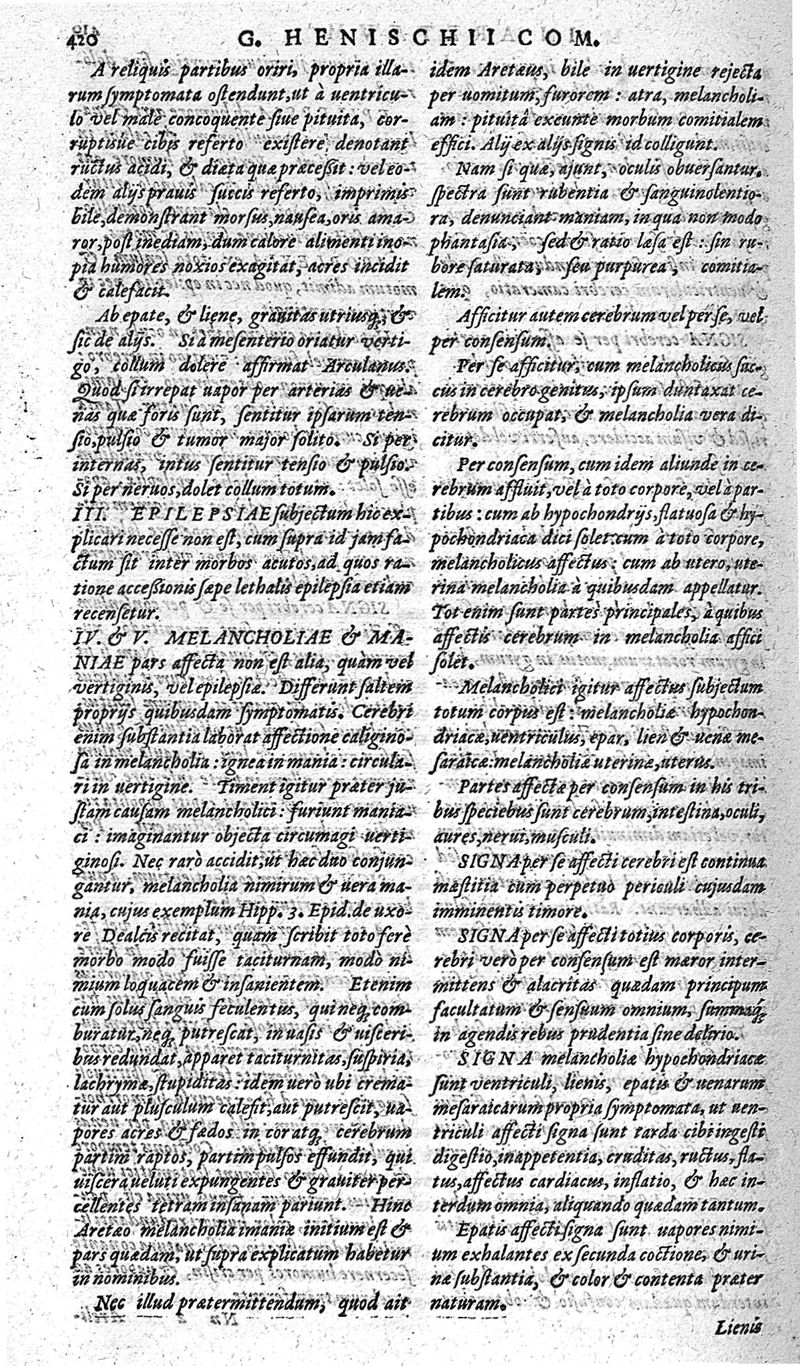 420
G. HENISCHII COM.
A reliquis partibus oriri, propria illa-
rum symptomata ostendunt, ut à uentricu-
lo vel malè concoquente siue pituita, cor-
ruptisúe cibis referto existere, denotant
ructus acidi, & diæta quæ præcessit: vel eo-
dem alijs prauis succis referto, imprimis
bile, demonstrant morsus, nausea, oris ama-
ror, post inediam, dum calore alimenti ino-
pia humores noxios exagitat, acres incidit
& calefacit.
Ab epate, & liene, grauitas utriusq;, &
sic de alijs. Si à mesenterio oriatur verti-
go, collum dolere affirmat Arculanus.
Quod si irrepat uapor per arterias & ue-
nas quæ foris sunt, sentitur ipsarum ten-
sio, pulsio & tumor major solito. Si per
internas, intus sentitur tensio & pulsio.
Si per neruos, dolet collum totum.
III. EPILEPSIAE subjectum hic ex-
plicari necesse non est, cum supra id jam fa-
ctum sit inter morbos acutos, ad quos ra-
tione accessionis sæpe lethalis epilepsia etiam
recensetur.
IV. & V. MELANCHOLIAE & MA-
NIAE pars affecta non est alia, quàm vel
vertiginis, vel epilepsiæ. Differunt saltem
proprijs quibusdam symptomatis. Cerebri
enim substantia laborat affectione caligino-
sa in melancholia: ignea in mania: circula-
ri in uertigine. Timent igitur præter ju-
stam causam melancholici: furiunt mania-
ci: imaginantur objecta circumagi uerti-
ginosi. Nec rarò accidit, ut hæc duo conjun-
gantur, melancholia nimirum & uera ma-
nia, cujus exemplum Hipp. 3. Epid. de uxo-
re Dealcis recitat, quam scribit toto ferè
morbo modo fuisse taciturnam, modò ni-
mium loquacem & insanientem. Etenim
cum solus sanguis feculentus, qui neq; com-
buratur, neq; putrescat, in uasis & uisceri-
bus redundat, apparet taciturnitas, suspiria,
lachrymæ, stupiditas: idem uerò ubi crema-
tur aut plusculum calefit, aut putrescit, ua-
pores acres & fædos in cor atq; cerebrum
partim raptos, partim pulsos effundit, qui
uiscera ueluti expungentes & grauiter per-
cellentes tetram insaniam pariunt. Hinc
Aretæo melancholia maniæ initium est &
pars quædam, ut supra explicatum habetur
in nominibus.
Nec illud prætermittendum, quod ait
idem Aretæus, bile in uertigine rejecta
per uomitum, furorem: atra, melancholi-
am: pituitâ exeunte morbum comitialem
effici. Alij ex alijs signis id colligunt.
Nam si quæ, ajunt, oculis obuersantur
spectra sunt rubentia & sanguinolentio-
ra, denunciant maniam, in qua non modo
phantasia, sed & ratio læsa est: sin ru-
bore saturata, seu purpurea, comitia-
lem.
Afficitur autem cerebrum vel per se, vel
per consensum.
Per se afficitur, cum melancholicus suc-
cus in cerebro genitus, ipsum duntaxat ce-
rebrum occupat, & melancholia vera di-
citur.
Per consensum, cum idem aliunde in ce-
rebrum affluit, vel à toto corpore, vel à par-
tibus: cum ab hypochondrijs, flatuosa & hy-
pochondriaca dici solet: cum à toto corpore,
melancholicus affectus: cum ab utero, ute-
rina melancholia à quibusdam appellatur.
Tot enim sunt partes principales, à quibus
affectis cerebrum in melancholia affici
solet.
Melancholici igitur affectus subjectum
totum corpus est: melancholiæ hypochon-
driacæ, uentriculus, epar, lien & uenæ me-
saraicæ: melancholiæ uterinæ, uterus.
Partes affectæ per consensum in his tri-
bus speciebus sunt cerebrum, intestina, oculi,
aures, nerui, musculi.
SIGNA per se affecti cerebri est continua
mæstitia cum perpetuo periculi cujusdam
imminentis timore.
SIGNA per se affecti totius corporis, ce-
rebri verò per consensum est mæror inter-
mittens & alacritas quædam principum
facultatum & sensuum omnium, summaq;
in agendis rebus prudentia sine delirio.
SIGNA melancholiæ hypochondriacæ
sunt ventriculi, lienis, epatis & uenarum
mesaraicarum propria symptomata, ut uen-
triculi affecti signa sunt tarda cibi ingesti
digestio, inappetentia, cruditas, ructus, fla-
tus, affectus cardiacus, inflatio, & hæc in-
terdum omnia, aliquando quædam tantum.
Epatis affecti signa sunt uapores nimi-
um exhalantes ex secunda coctione, & uri-
næ substantia, & color & contenta præter
naturam.
Lienis